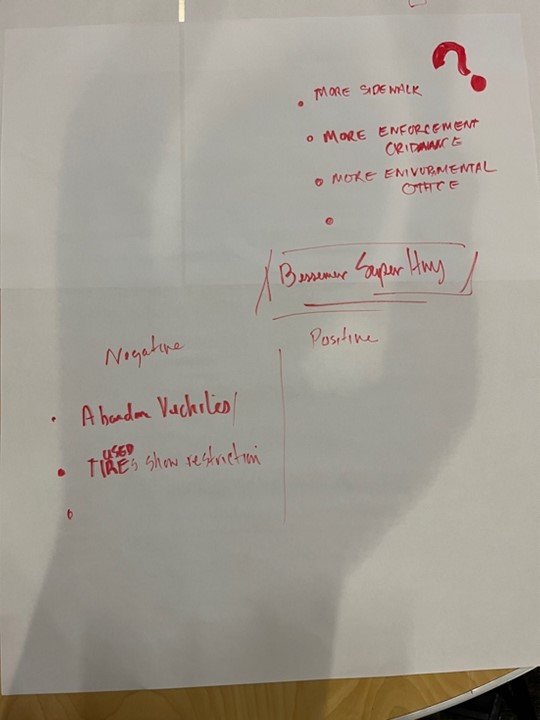 ?
• MORE SIDEWALK
• MORE ENFORCEMENT
ORIDNANCE
• MORE ENIVORMENTAL
OFFICE
•
Bessemer Super Hwy
Negative
Positive
• Abandon Vechiles/
USED
• TIRES show restriction
•